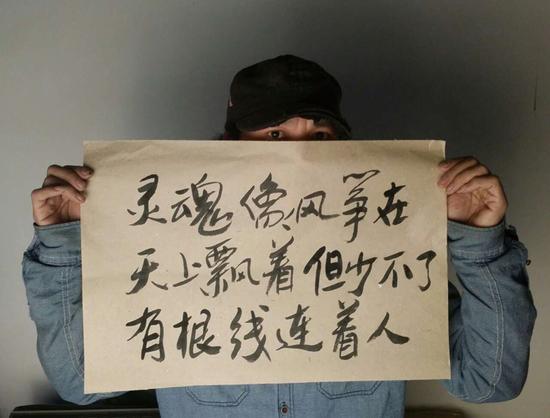 灵魂像风筝在
天上飘着但少不了
有根线连着人